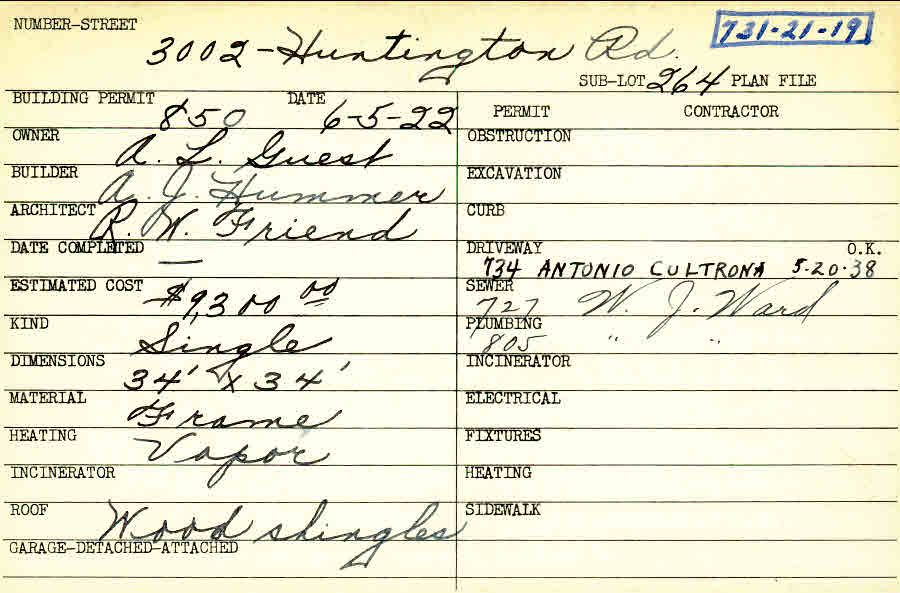 NUMBER-STREET 3002-Huntington Rd. 731-21-19
SUB-LOT 264 PLAN FILE
BUILDING PERMIT 850 DATE 6-5-22
OWNER A. L. Guest
BUILDER A. J. Hummer
ARCHITECT R. W. Friend
DATE COMPLETED —
ESTIMATED COST $9,300 00
KIND Single
DIMENSIONS 34' x 34'
MATERIAL Frame
HEATING Vapor
INCINERATOR
ROOF Wood shingles
GARAGE-DETACHED-ATTACHED
PERMIT CONTRACTOR
OBSTRUCTION
EXCAVATION
CURB
DRIVEWAY O.K.
734 ANTONIO CULTRONA 5-20-38
SEWER
727 W. J. Ward
PLUMBING
805 " "
INCINERATOR
ELECTRICAL
FIXTURES
HEATING
SIDEWALK